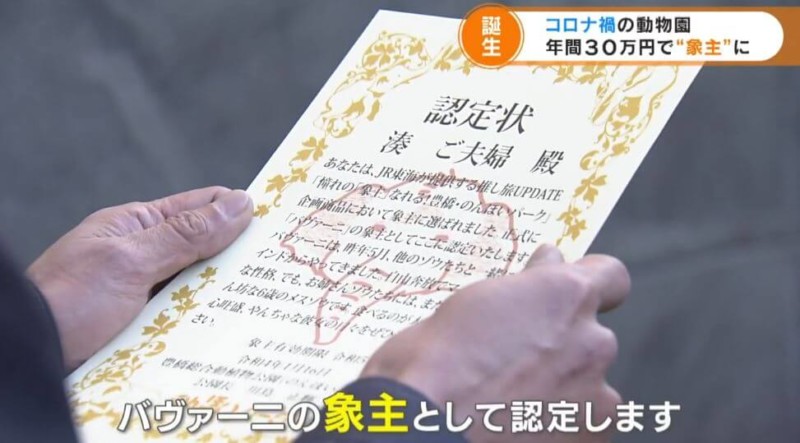 誕生
コロナ禍の動物園
年間30万円で“象主”に
認定状
湊 ご夫婦 殿
あなたは、JR東海が提供する推し旅UPDATE
「憧れの「象主」なれる!豊橋・のんほいパーク」
企画商品において象主に選ばれました 正式に
「バヴァーニ」の象主としてここに認定いたします
バヴァーニは、昨年5月、他のゾウたちと
インドからやってきました 自由奔放で
な性格、でも、お姉さんゾウたちには、まだ
ん坊な6歳のメスゾウです。食べるのが
心旺盛、やんちゃな彼女の
さい。
象主有効期限 令和
令和4年1月16日
豊橋総合動植物公園
公園長
バヴァーニの象主として認定します